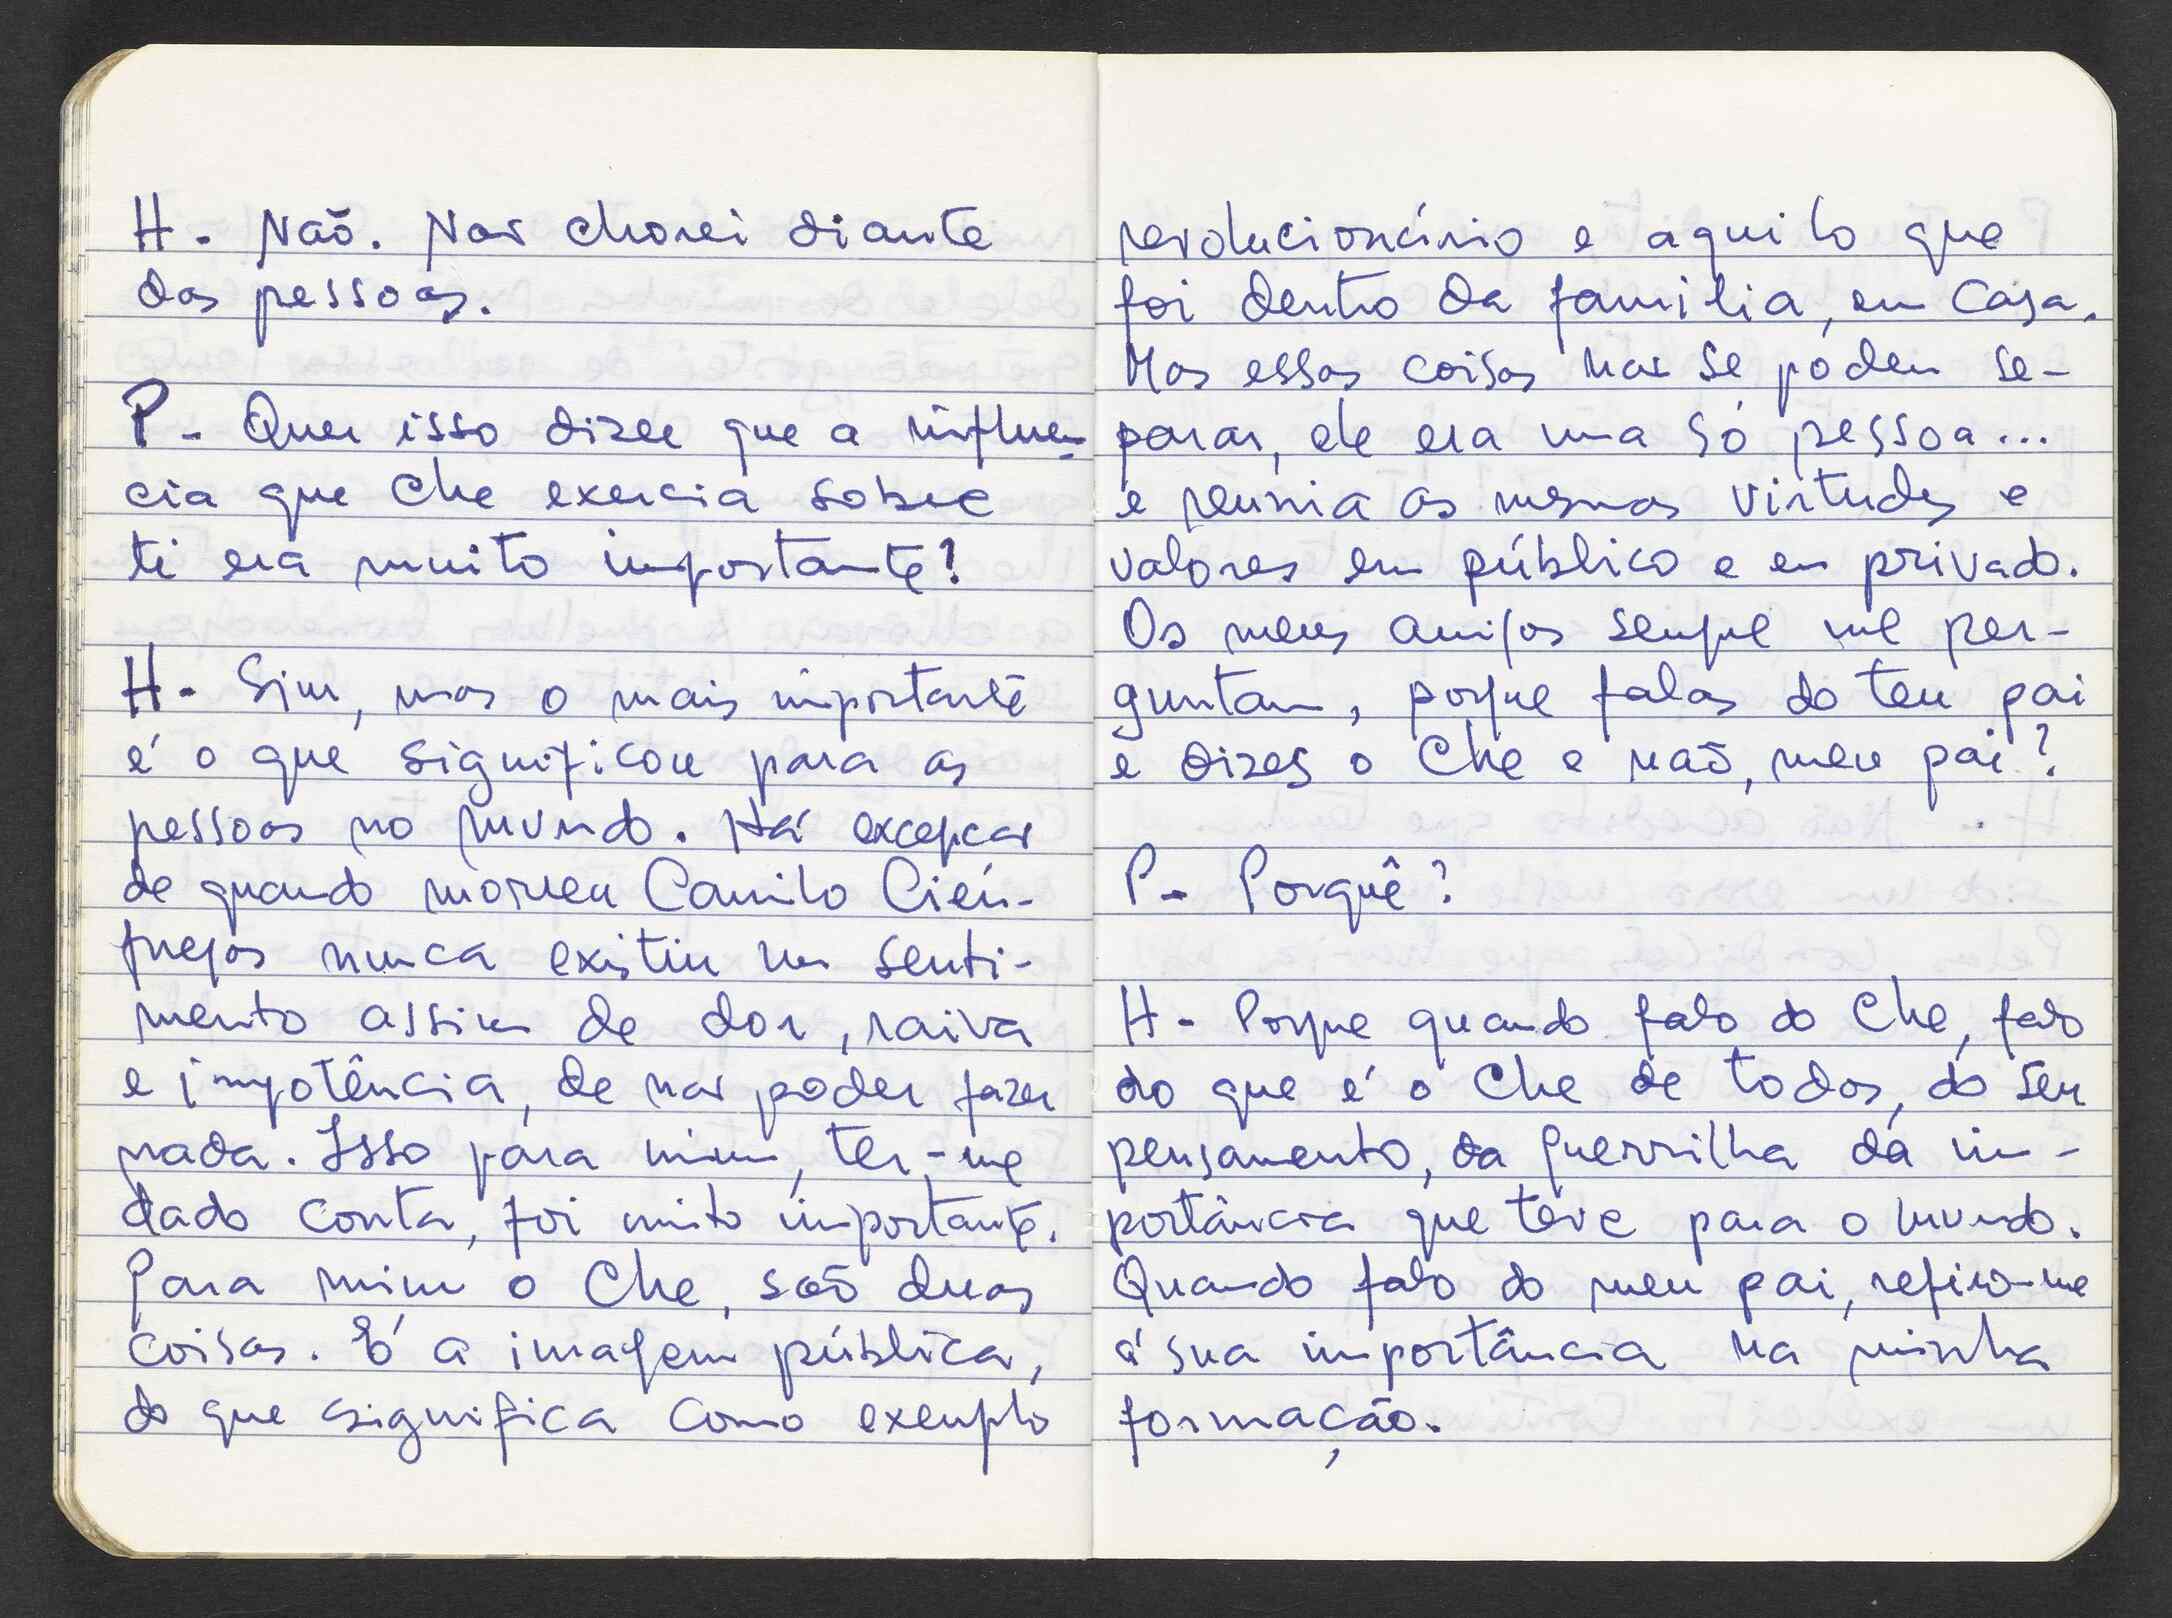 H - Não. Não chorei diante
das pessoas.
P - Quer isso dizer que a influên-
cia que Che exercia sobre
ti era muito importante?
H - Sim, mas o mais importante
é o que significou para as
pessoas no mundo. Há excepção
de quando morreu Camilo Cien-
fuegos nunca existiu um senti-
mento assim de dor, raiva
e impotência, de não poder fazer
nada. Isso para mim, ter-me
dado conta, foi muito importante.
Para mim o Che, são duas
coisas. É a imagem pública,
do que significa como exemplo
revolucionário e aquilo que
foi dentro da família, em casa.
Mas essas coisas não se podem se-
parar, ele era uma só pessoa...
e reunia as mesmas virtudes e
valores em público e em privado.
Os meus amigos sempre me per-
guntam, porque falas do teu pai
e dizes o Che e não, meu pai?
P - Porquê?
H - Porque quando falo do Che, falo
do que é o Che de todos, do seu
pensamento, da guerrilha da im-
portância que teve para o mundo.
Quando falo do meu pai, refiro-me
á sua importância na minha
formação.